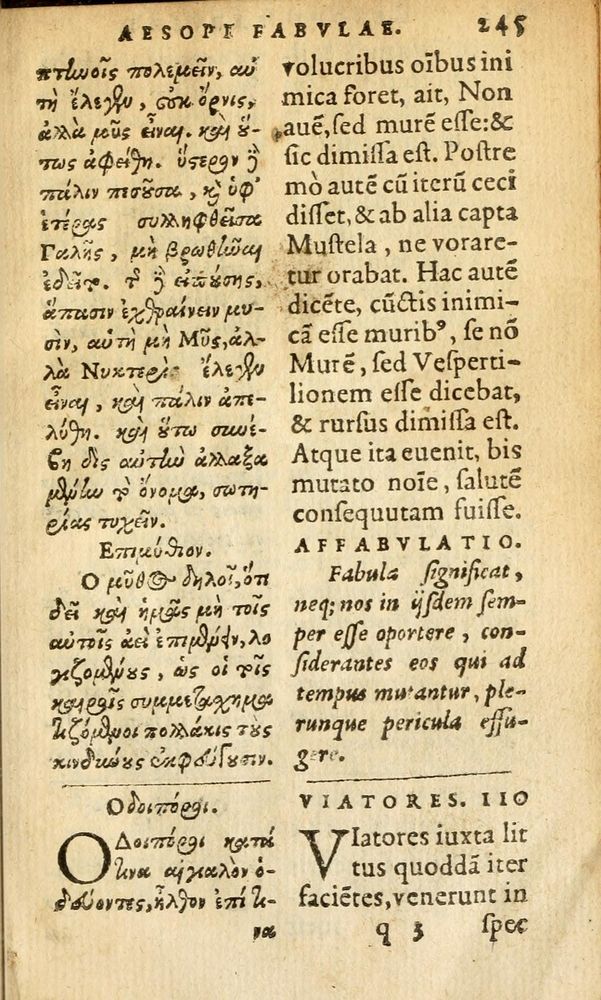 AESOPI FABVLAE. 245
πτηνοῖς πολεμεῖν, αὐ
τὴ ἔλεγεν, οὐκ ὄρνις,
ἀλλὰ μῦς εἶναι. καὶ οὕ-
τως ἀφείθη. ὕστερον δὲ
πάλιν πεσοῦσα, καὶ ὑφ'
ἑτέρας συλληφθεῖσα
Γαλῆς, μὴ βρωθῆναι
ἐδεῖτο. τῆς δὲ εἰπούσης,
ἅπασιν ἐχθραίνειν μυ-
σὶν, αὐτὴ μὴ Μῦς, ἀλ-
λὰ Νυκτερὶς ἔλεγεν
εἶναι, καὶ πάλιν ἀπε-
λύθη. καὶ οὕτω συνέ-
βη δὶς αὐτὴν ἀλλαξα
μένην τὸ ὄνομα, σωτη-
ρίας τυχεῖν.
Επιμύθιον.
Ο μῦθος δηλοῖ, ὅτι
δεῖ καὶ ἡμᾶς μὴ τοῖς
αὐτοῖς ἀεὶ ἐπιμένειν, λο
γιζομένους, ὡς οἱ τοῖς
καιροῖς συμμετασχημα
τιζόμενοι πολλάκις τοὺς
κινδύνους ἐκφεύγουσιν.
Οδοιπόροι.
ΟΔοιπόροι κατά
τινα αἰγιαλὸν ὁ-
δεύοντες, ἦλθον ἐπί τι-
να
volucribus oĩbus ini
mica foret, ait, Non
auẽ, sed murẽ esse: &
sic dimissa est. Postre
mò autẽ cũ iterũ ceci
disset, & ab alia capta
Mustela, ne vorare-
tur orabat. Hac autẽ
dicẽte, cũctis inimi-
cã esse muribꝰ, se nõ
Murẽ, sed Vesperti-
lionem esse dicebat,
& rursus dimissa est.
Atque ita euenit, bis
mutato noĩe, salutẽ
consequutam fuisse.
AFFABVLATIO.
Fabula significat,
neq; nos in ijsdem sem-
per esse oportere, con-
siderantes eos qui ad
tempus mutantur, ple-
runque pericula effu-
gere.
VIATORES. 110
VIatores iuxta lit
tus quoddã iter
faciẽtes, venerunt in
q 3 spec